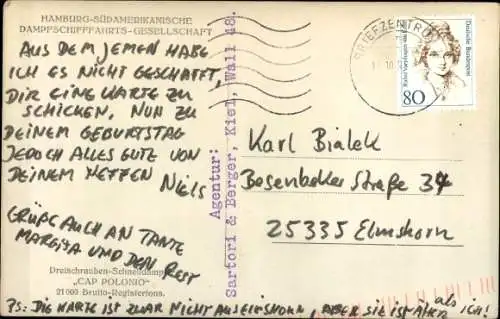 HAMBURG-SÜDAMERIKANISCHE
DAMPFSCHIFFFAHRTS-GESELLSCHAFT
AUS DEM JEMEN HABE
ICH ES NICHT GESCHAFFT,
DIR EINE KARTE ZU
SCHICKEN, NUN ZU
DEINEM GEBURTSTAG
JEDOCH ALLES GUTE VON
DEINEM NEFFEN
NIELS
GRÜßE AUCH AN TANTE
MARGITA UND DEN REST
Dreischrauben-Schnelldampfer
„CAP POLONIO"
21000 Brutto-Registertons.
PS: DIE KARTE IST ZWAR NICHT AUS ELMSHORN ABER SIE IST ÄLTER als ICH!
Agentur:
Sartori & Berger, Kiel, Wall 48.
BRIEFZENTRUM
Deutsche Bundespost
80
Karl Bialek
Besenbeker Straße 34
25335 Elmshorn